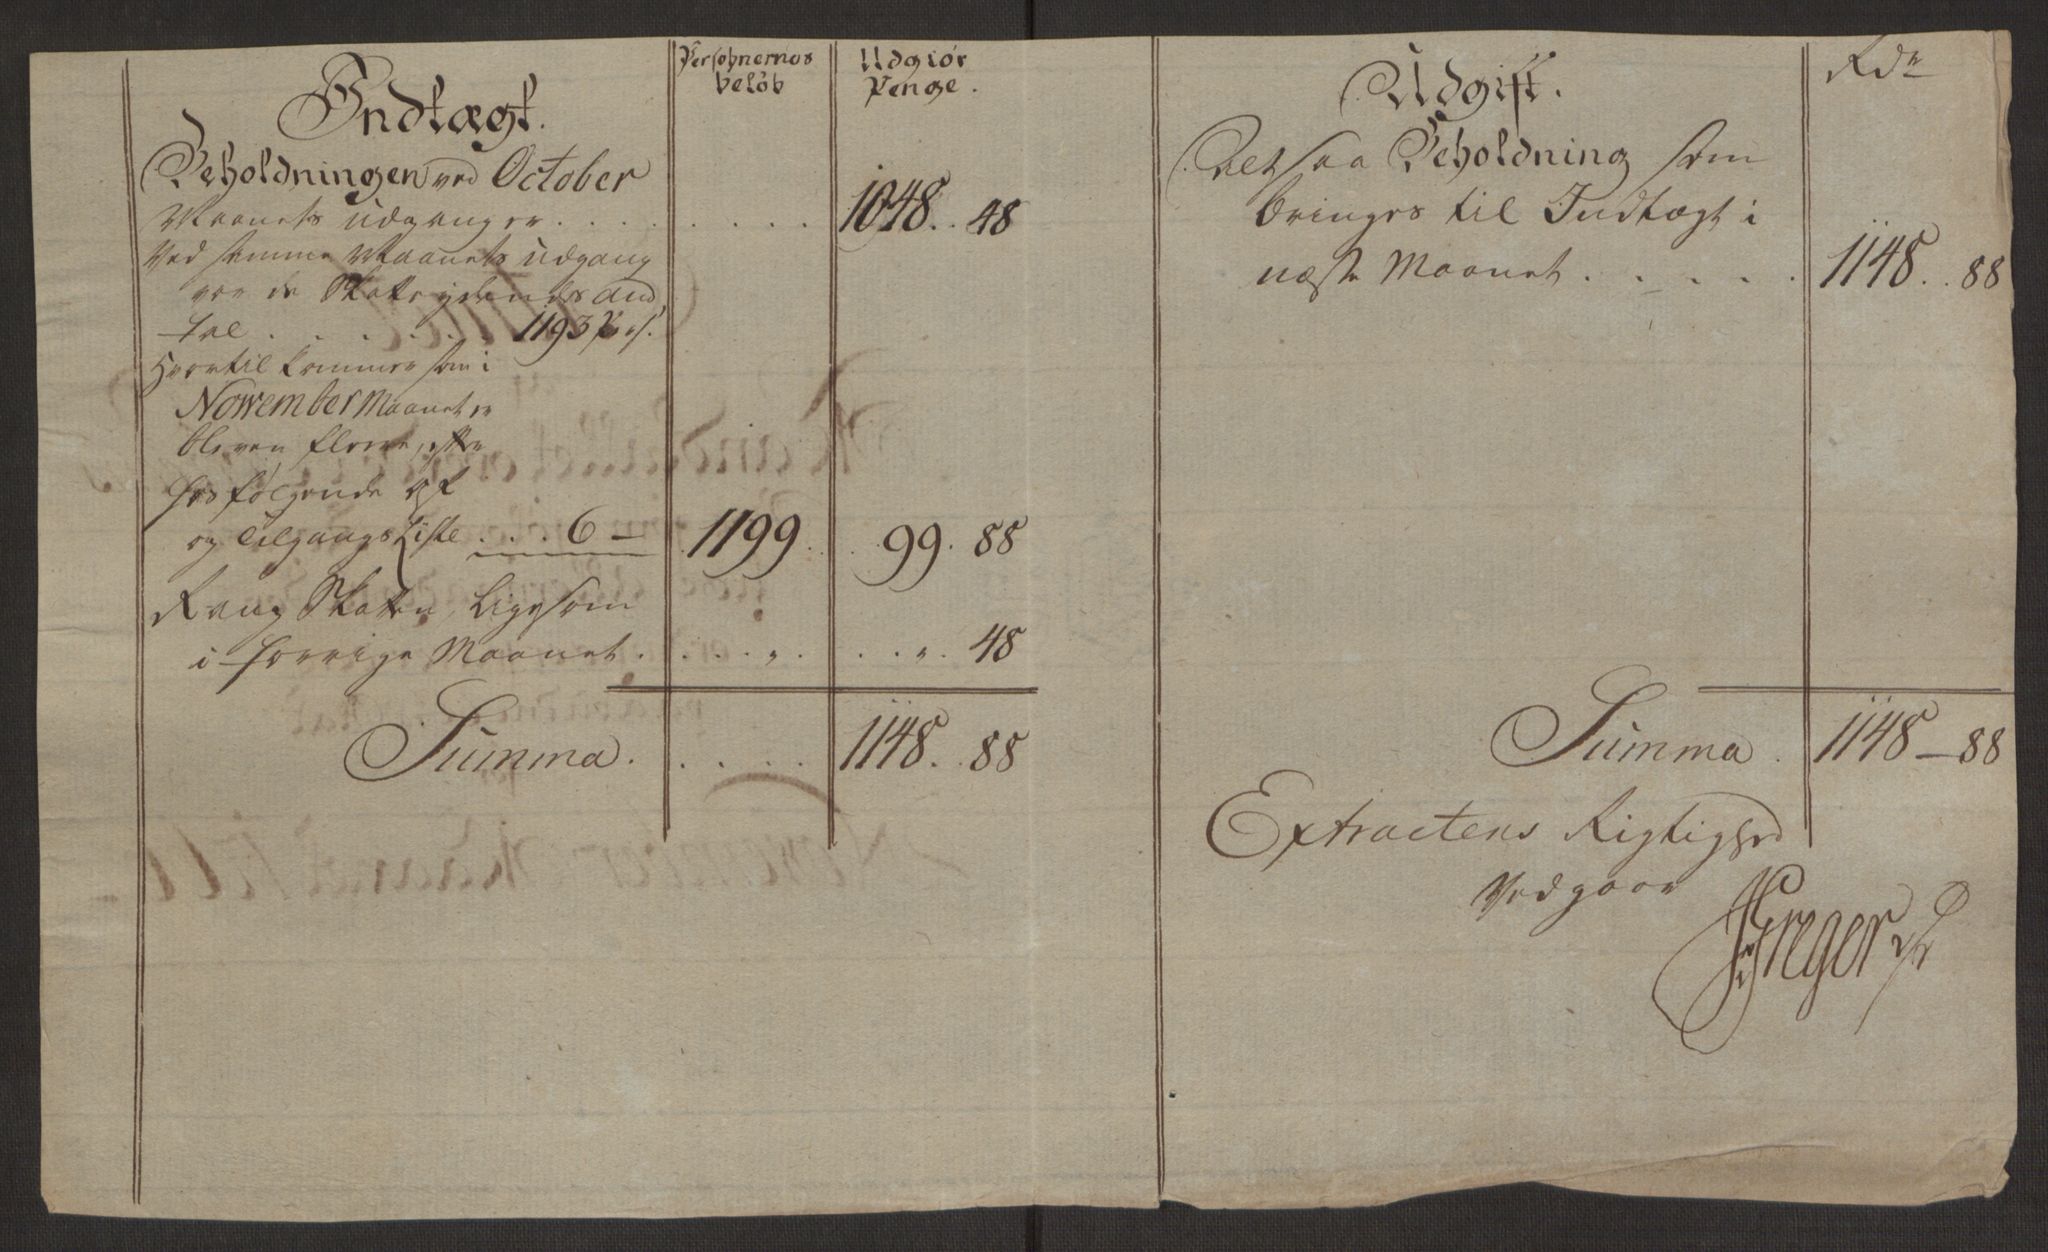 Indtægt.
Persohnernes
beløb
Udgiør
Penge.
Beholdningen ved October
Maanets udgang er . . . . . . . . 1048 .. 48
Ved samme Maanets udgang
var de Skatteydendes an-
tal . . . . . . 1193 Pers.
Hvortil kommer som i
November Maanet er
bleven flere, efter
hosfølgende af
og Tilgangs Liste . . . 6 — 1199 . . 99. 88
Rang Skatten, ligesom
i forrige Maanet . . . . „ . . . „ . 48
Summa. . . . . 1148. . 88
Udgift.
Rdr
Altsaa Beholdning som
bringes til Indtægt i
næste Maanet . . . . . 1148. . 88
Summa . 1148 — 88
Extractens Rigtighed
Vedgaar
Gregers